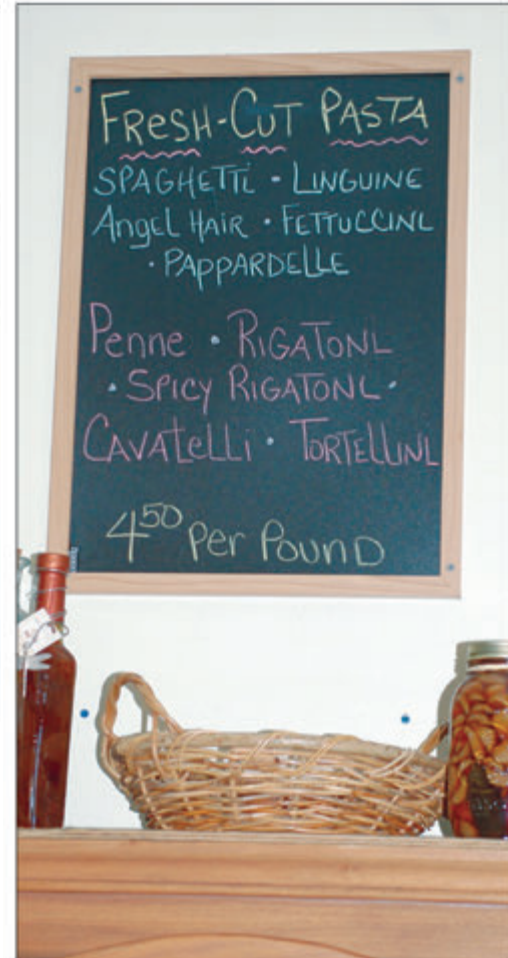 FRESH-CUT PASTA
SPAGHETTI · LINGUINE
Angel HAIR · FETTUCCINI
· PAPPARDELLE
Penne · RIGATONI
· SPICY RIGATONI ·
CAVATELLI · TORTELLINI
4⁵⁰ Per POUND